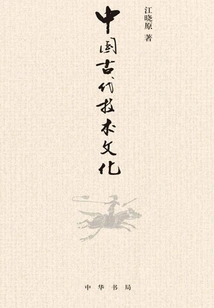 江晓原 著
中国古代技术文化
中华书局